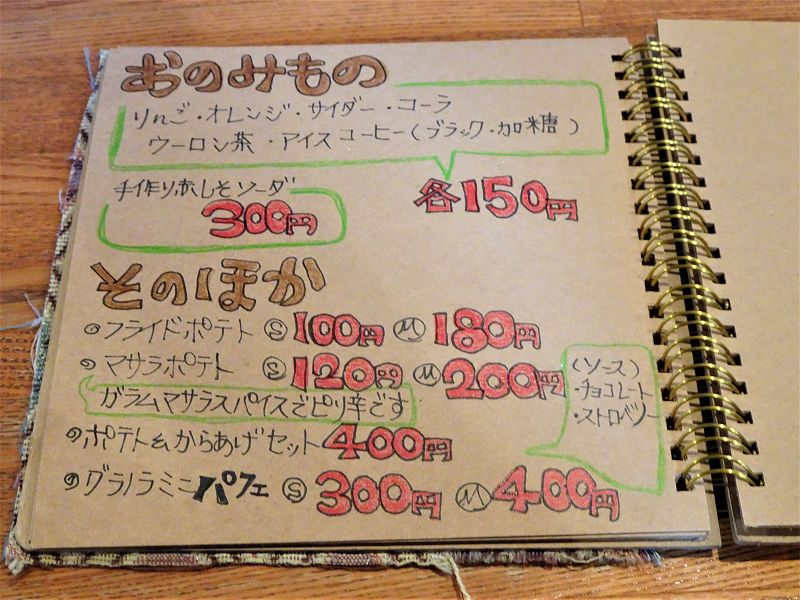 おのみもの
りんご・オレンジ・サイダー・コーラ
ウーロン茶・アイスコーヒー(ブラック・加糖)
各150円
手作り赤しそソーダ
300円
そのほか
フライドポテト Ⓢ100円 Ⓜ180円
マサラポテト Ⓢ120円 Ⓜ200円
ガラムマサラスパイスでピリ辛です
ポテト&からあげセット 400円
グラノラミニパフェ Ⓢ300円 Ⓜ400円
(ソース)
・チョコレート
・ストロベリー